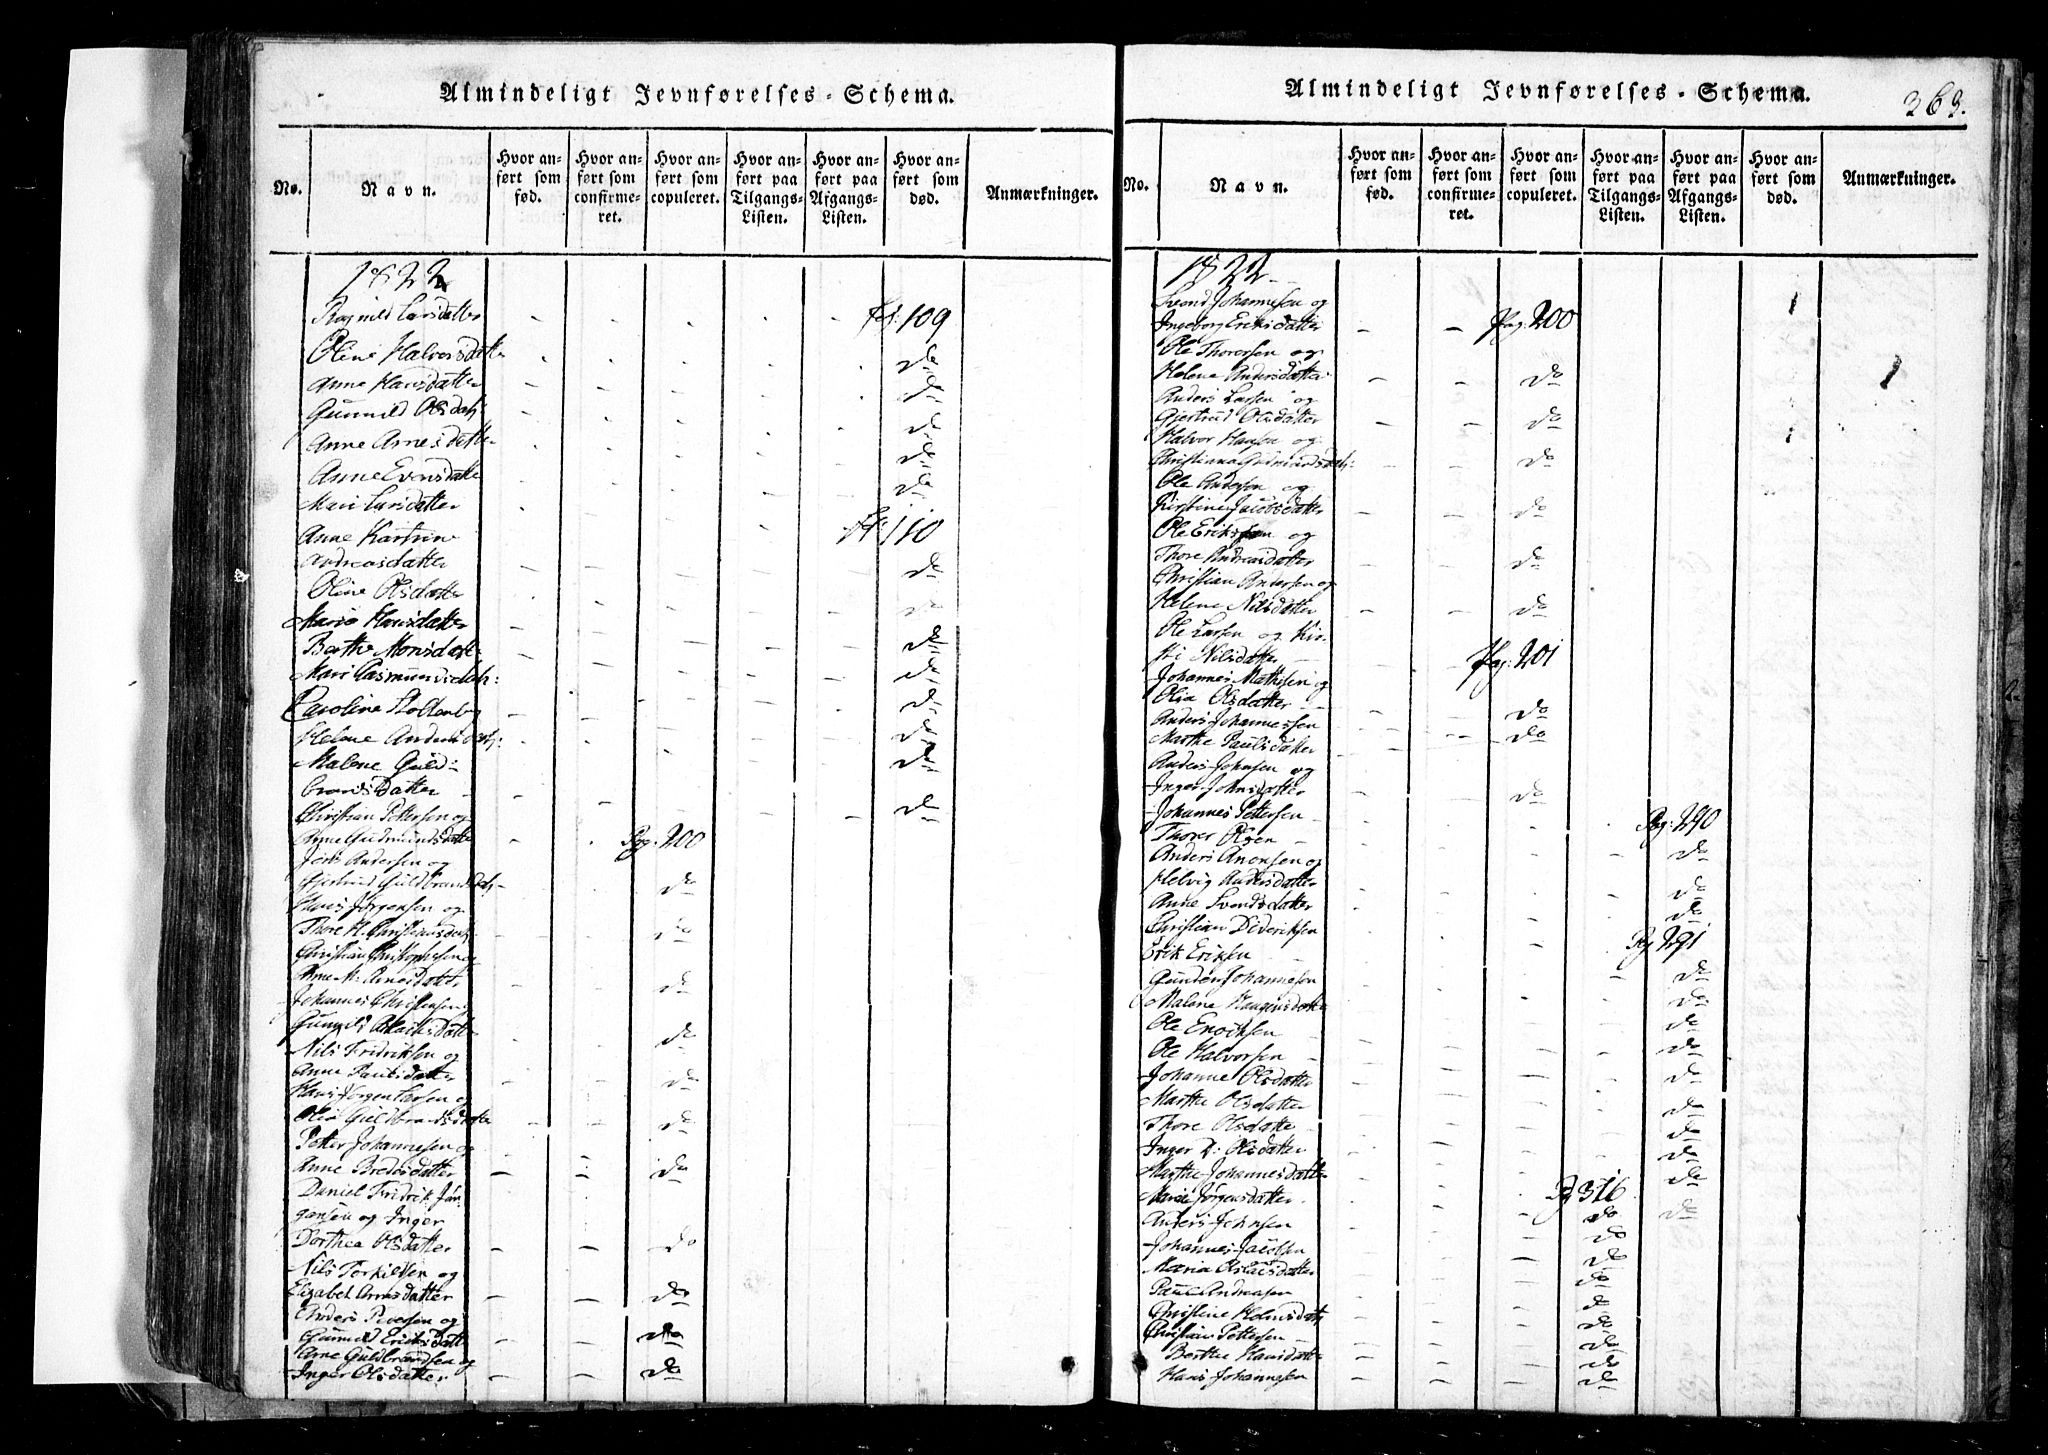 Almindeligt Jevnførelses-Schema.
No.
Navn.
Hvor anført som fød.
Hvor anført som confirmeret.
Hvor anført som copuleret.
Hvor anført paa Tilgangs-Listen.
Hvor anført paa Afgangs-Listen.
Hvor anført som død.
Anmærkninger.
1822
Ragnild Larsdatter - - - - - fol: 109
Oline Halvorsdatter do
Anne Hansdatter do
Gunnild Olsdatt: do
Anne Arnesdatter do
Anne Evensdatter do
Mari Larsdatter do
Anne Katrine 110
Andreasdatter do
Oline Olsdatter do
Maria Hansdatter do
Berthe Monsdatt: do
Mari Rasmusdatt: do
Caroline Stoltenberg do
Helene Andersdatt: do
Malene Guld-
brandsdatter do
Christian Pettersen og
Anne Gudmundsdatter Pag: 200
Andersen og
Gjertrud Guldbrandsdatt: do
Hans Jørgensen og
Thore H. Christensdatt: do
Christian Christophersen og
Anne M: Arnesdatter do
Johannes Christensen
Gunnild do
Nils Fridriksen og
Anne Paulsdatter do
Hans Jørgen Larsen og
Olia Guldbrandsdatter do
Petter Johannesen og
Anne Bredesdatter do
Daniel Fridrik Jør-
gensen og Inger
Dorthea Olsdatter do
Nils Torkildsen og
Elizabet Arnesdatter do
Anders Iversen og
Gunnild Eriksdatter do
Arne Guldbrandsen og
Inger Olsdatter do
Almindeligt Jevnførelses-Schema.
363.
No.
Navn.
Hvor anført som fød.
Hvor anført som confirmeret.
Hvor anført som copuleret.
Hvor anført paa Tilgangs-Listen.
Hvor anført paa Afgangs-Listen.
Hvor anført som død.
Anmærkninger.
1822
Svend Johannesen og
Ingeborg Eriksdatter - - Pag: 200
Ole Thorersen og
Helene Andersdatter do
Anders Larsen og
Gjertrud Olsdatter do
Halvor Hansen og
Christiana Gudmundsdatt: do
Ole Andersen og
Kirstine Jacobsdatter do
Ole Eriksen og
Thore Andreasdatter do
Christian Andersen og
Helene Nilsdatter do
Ole Larsen og Kir-
sti Nilsdatter Pag: 201
Johannes Mathisen og
Olia Olsdatter do
Anders Johannessen
Marthe Paulsdatter do
Anders Johnsen og
Inger Johnsdatter do
Johannes Pettersen Pag: 290
Thorer Olsen do
Anders Anonsen og
Helvig Andersdatter do
Anne Svendsdatter do
Christian Dideriksen Pag 291
Erik Eriksen do
Gunder Johannesen do
Malene Haagensdatter do
Ole Eriksen do
Ole Halvorsen do
Johanne Olsdatter do
Marthe Olsdatter do
Thore Olsdatter do
Inger D: Olsdatter do
Marthe Johannesdatter do
Marie Jørgensdatter Pg 316
Anders Johnsen do
Johannes Jacobsen do
Maria Olsdatter do
Paul Andreasen do
Christine Holmsdatt: do
Christian Pettersen do
Berthe Hansdatter do
Hans Johannesen do